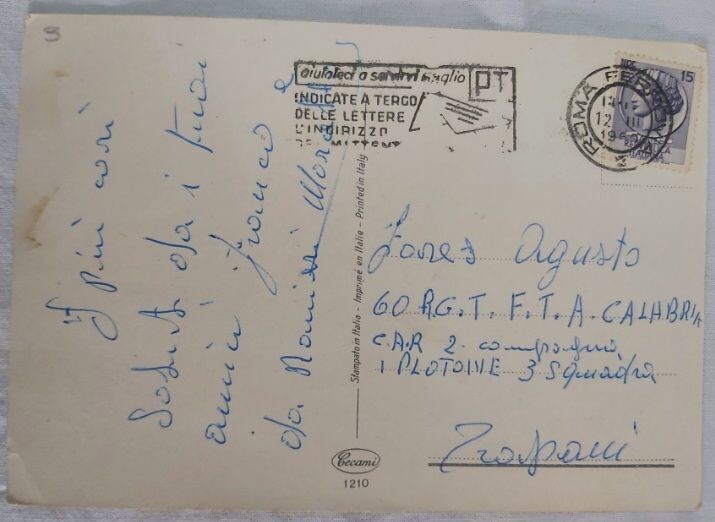 I più cari
Saluti da i tuoi
amici Franco e
da Ranieri
aiutateci a servirvi meglio
PT
INDICATE A TERGO
DELLE LETTERE
L'INDIRIZZO
DEL MITTENTE
ROMA FERROVIA
12
15
Stampato in Italia - Imprimé en Italie - Printed in Italy
Agusto
60 RG.T. F.T.A. CALABRIA
C.A.R 2 compagnia
1 PLOTONE 3 Squadra
Trapani
Cecami
1210